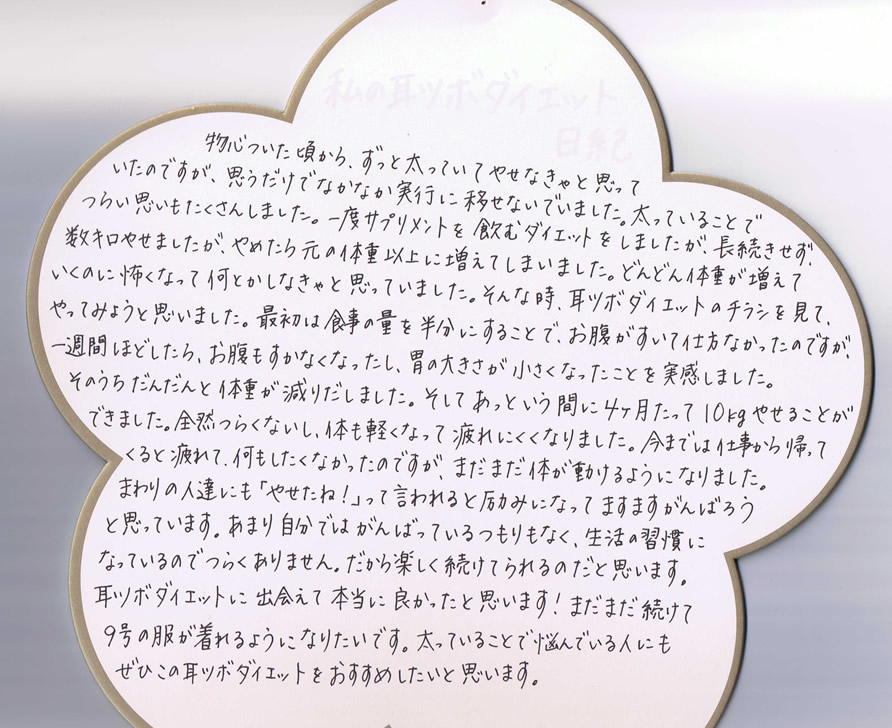 私の耳ツボダイエット
日記
物心ついた頃から、ずっと太っていてやせなきゃと思って
いたのですが、思うだけでなかなか実行に移せないでいました。太っていることで
つらい思いもたくさんしました。一度サプリメントを飲むダイエットをしましたが、長続きせず、
数キロやせましたが、やめたら元の体重以上に増えてしまいました。どんどん体重が増えて
いくのに怖くなって何とかしなきゃと思っていました。そんな時、耳ツボダイエットのチラシを見て、
やってみようと思いました。最初は食事の量を半分にすることで、お腹がすいて仕方なかったのですが、
一週間ほどしたら、お腹もすかなくなったし、胃の大きさが小さくなったことを実感しました。
そのうちだんだんと体重が減りだしました。そしてあっという間に4ヶ月たって10kgやせることが
できました。全然つらくないし、体も軽くなって疲れにくくなりました。今までは仕事から帰って
くると疲れて、何もしたくなかったのですが、まだまだ体が動けるようになりました。
まわりの人達にも「やせたね!」って言われると励みになってますますがんばろう
と思っています。あまり自分ではがんばっているつもりもなく、生活の習慣に
なっているのでつらくありません。だから楽しく続けてられるのだと思います。
耳ツボダイエットに出会えて本当に良かったと思います!まだまだ続けて
9号の服が着れるようになりたいです。太っていることで悩んでいる人にも
ぜひこの耳ツボダイエットをおすすめしたいと思います。